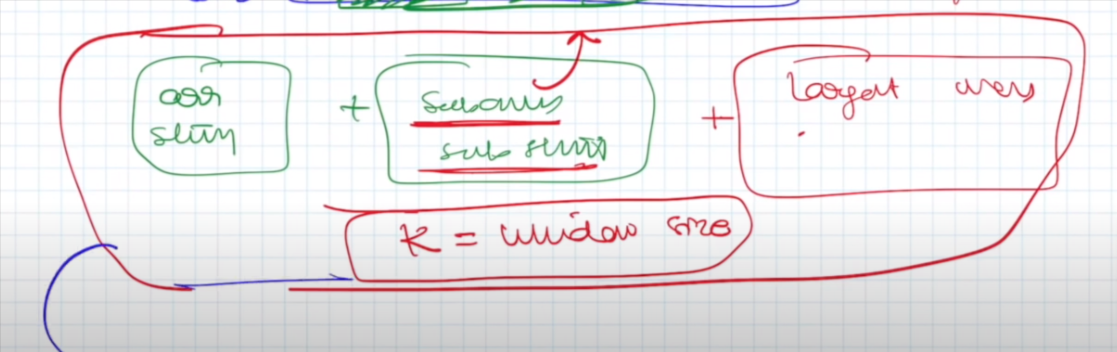 arr
string
+
Subarray
sub string
+
largest
K = window size